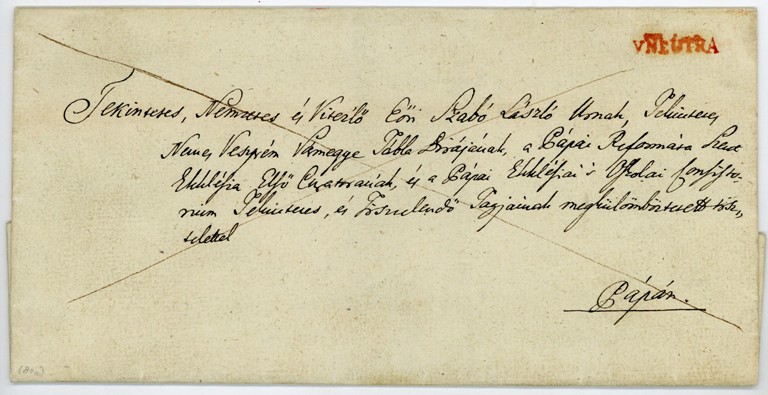 vNEUTRA
Tekintetes, Nemzetes és Vitézlő Eőri Szabó László Urnak, Tekintetes
Nemes Veszprém Vármegye Tábla Birájának, a Pápai Reformáta Szent
Ekklésia Első Curatorának, és a Pápai Ekklésiai 's Oskolai Consisto-
rium Tekintetes, és Tiszteletendő Tagjainak megkülömböztetett tisz-
telettel
Pápán.